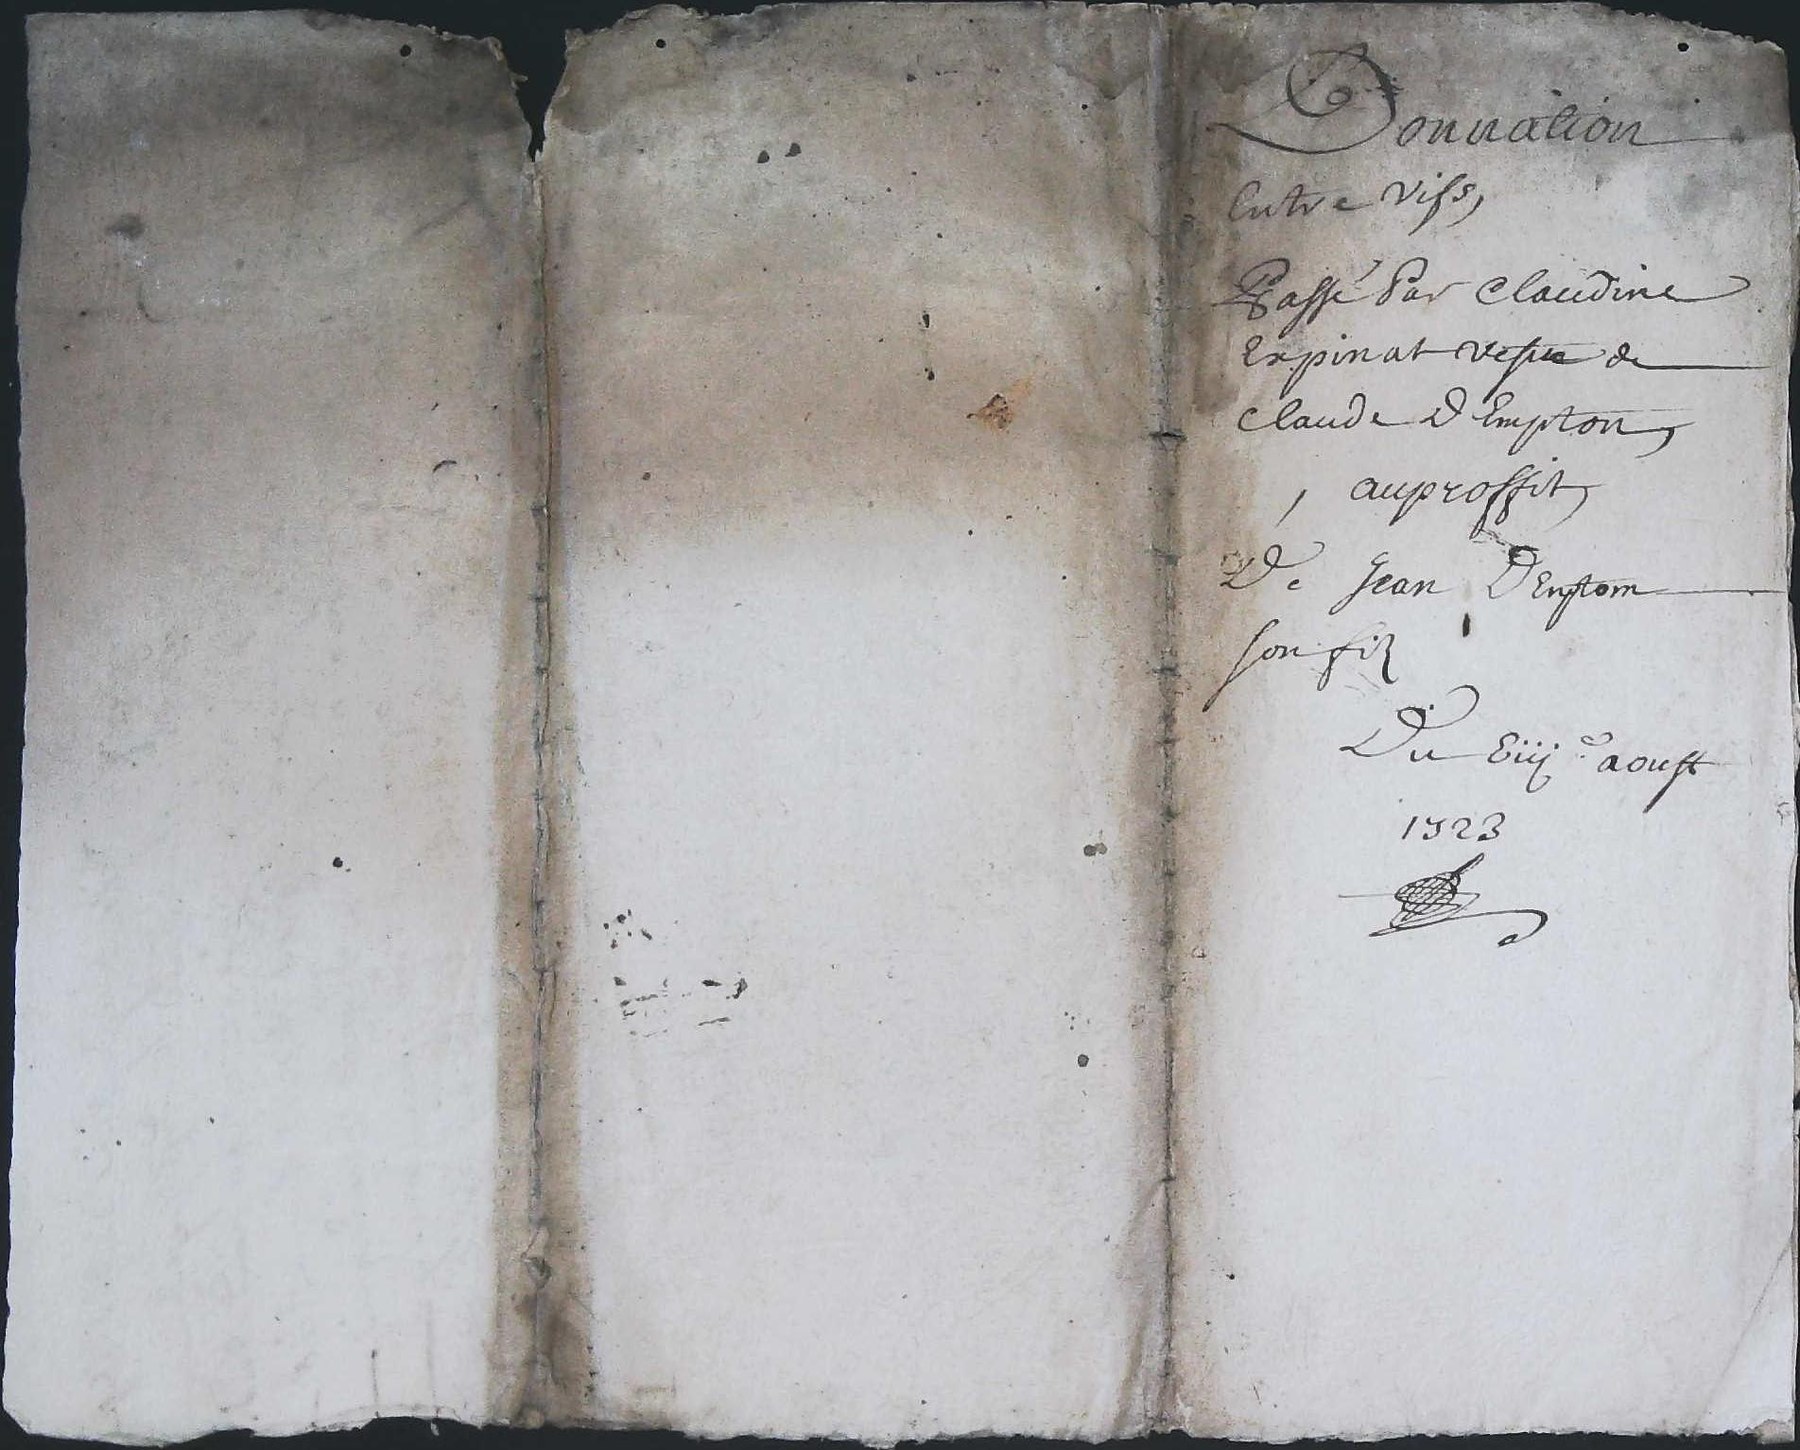 Donnation
Entre vifs,
Passé Par Claudine
Expinat vefue de
Claude DEmpton,
, auproffit,
De Jean DEmptom
son filz
Du Viij.e aoust
1723